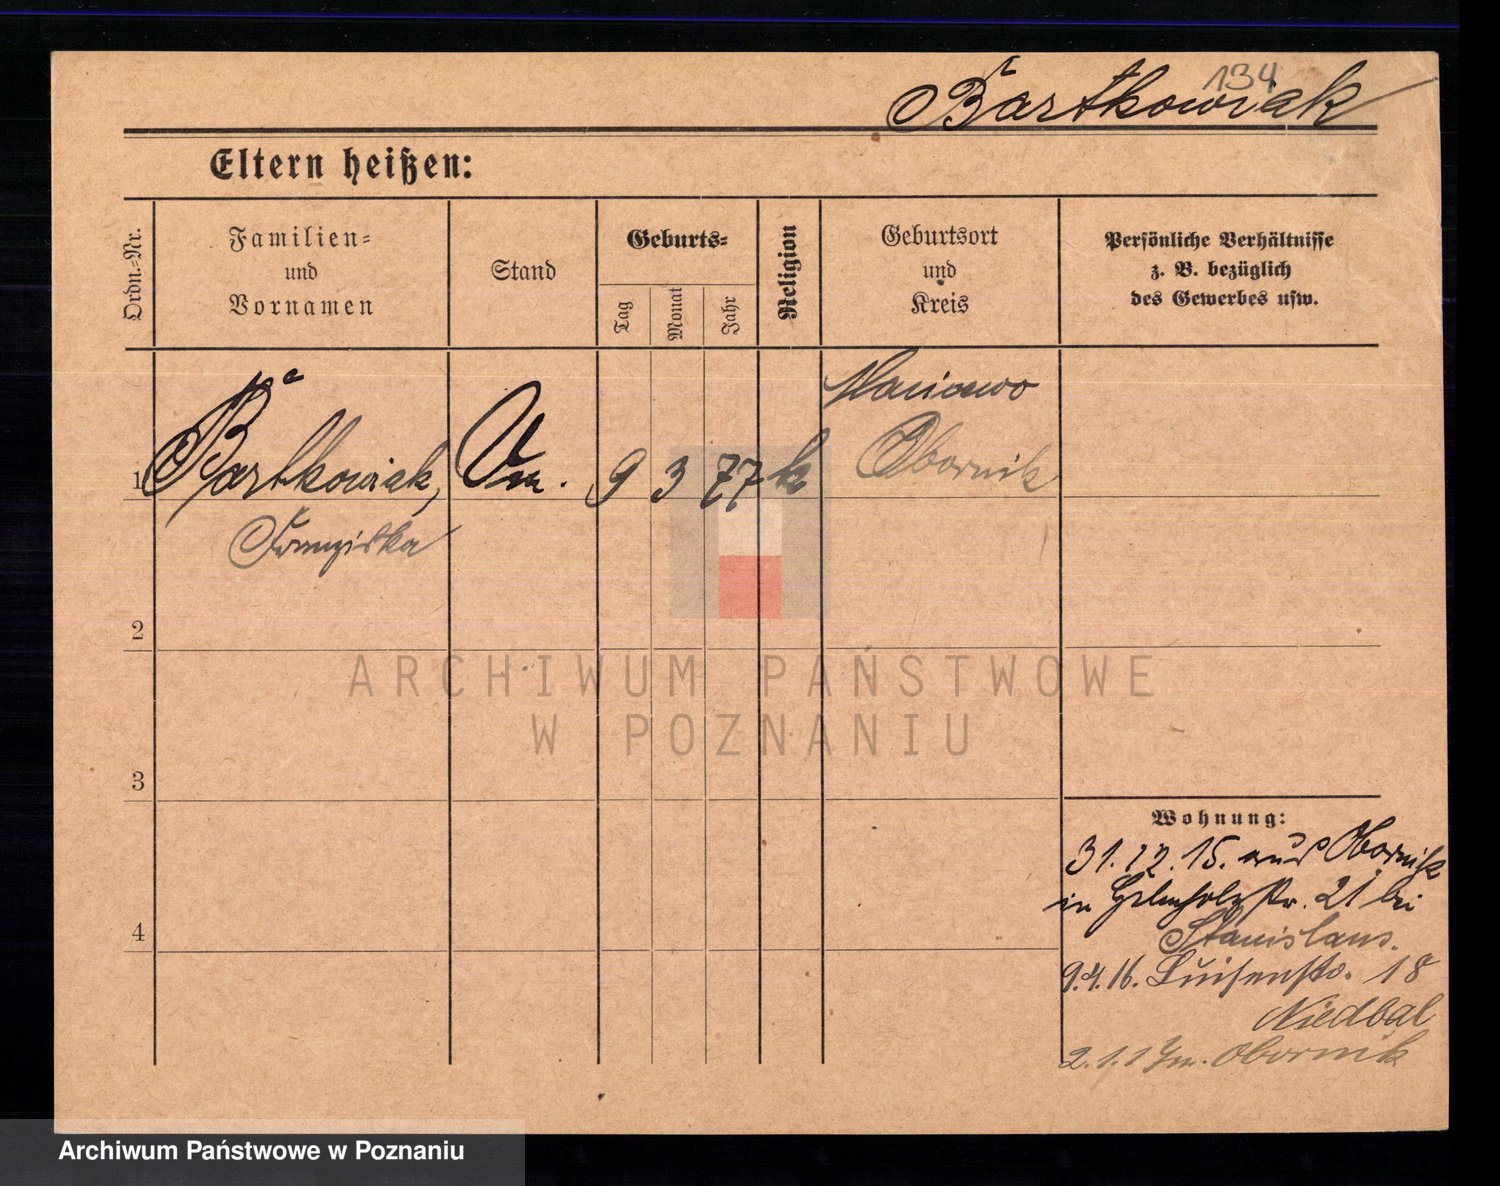 134
Bartkowiak
Eltern heißen:
Ordn.-Nr.
Familien-
und
Vornamen
Stand
Geburts-
Tag
Monat
Jahr
Religion
Geburtsort
und
Kreis
Persönliche Verhältnisse
z. B. bezüglich
des Gewerbes usw.
1 Bartkowiak, 9 3 77 k
Franziska
Obornik
2
3
4
Wohnung:
31.12.15. aus Obornik
in 21 bei
Stanislaus.
9.4.16. Luisenstr. 18
Niedbal
Obornik
ARCHIWUM PAŃSTWOWE
W POZNANIU
Archiwum Państwowe w Poznaniu